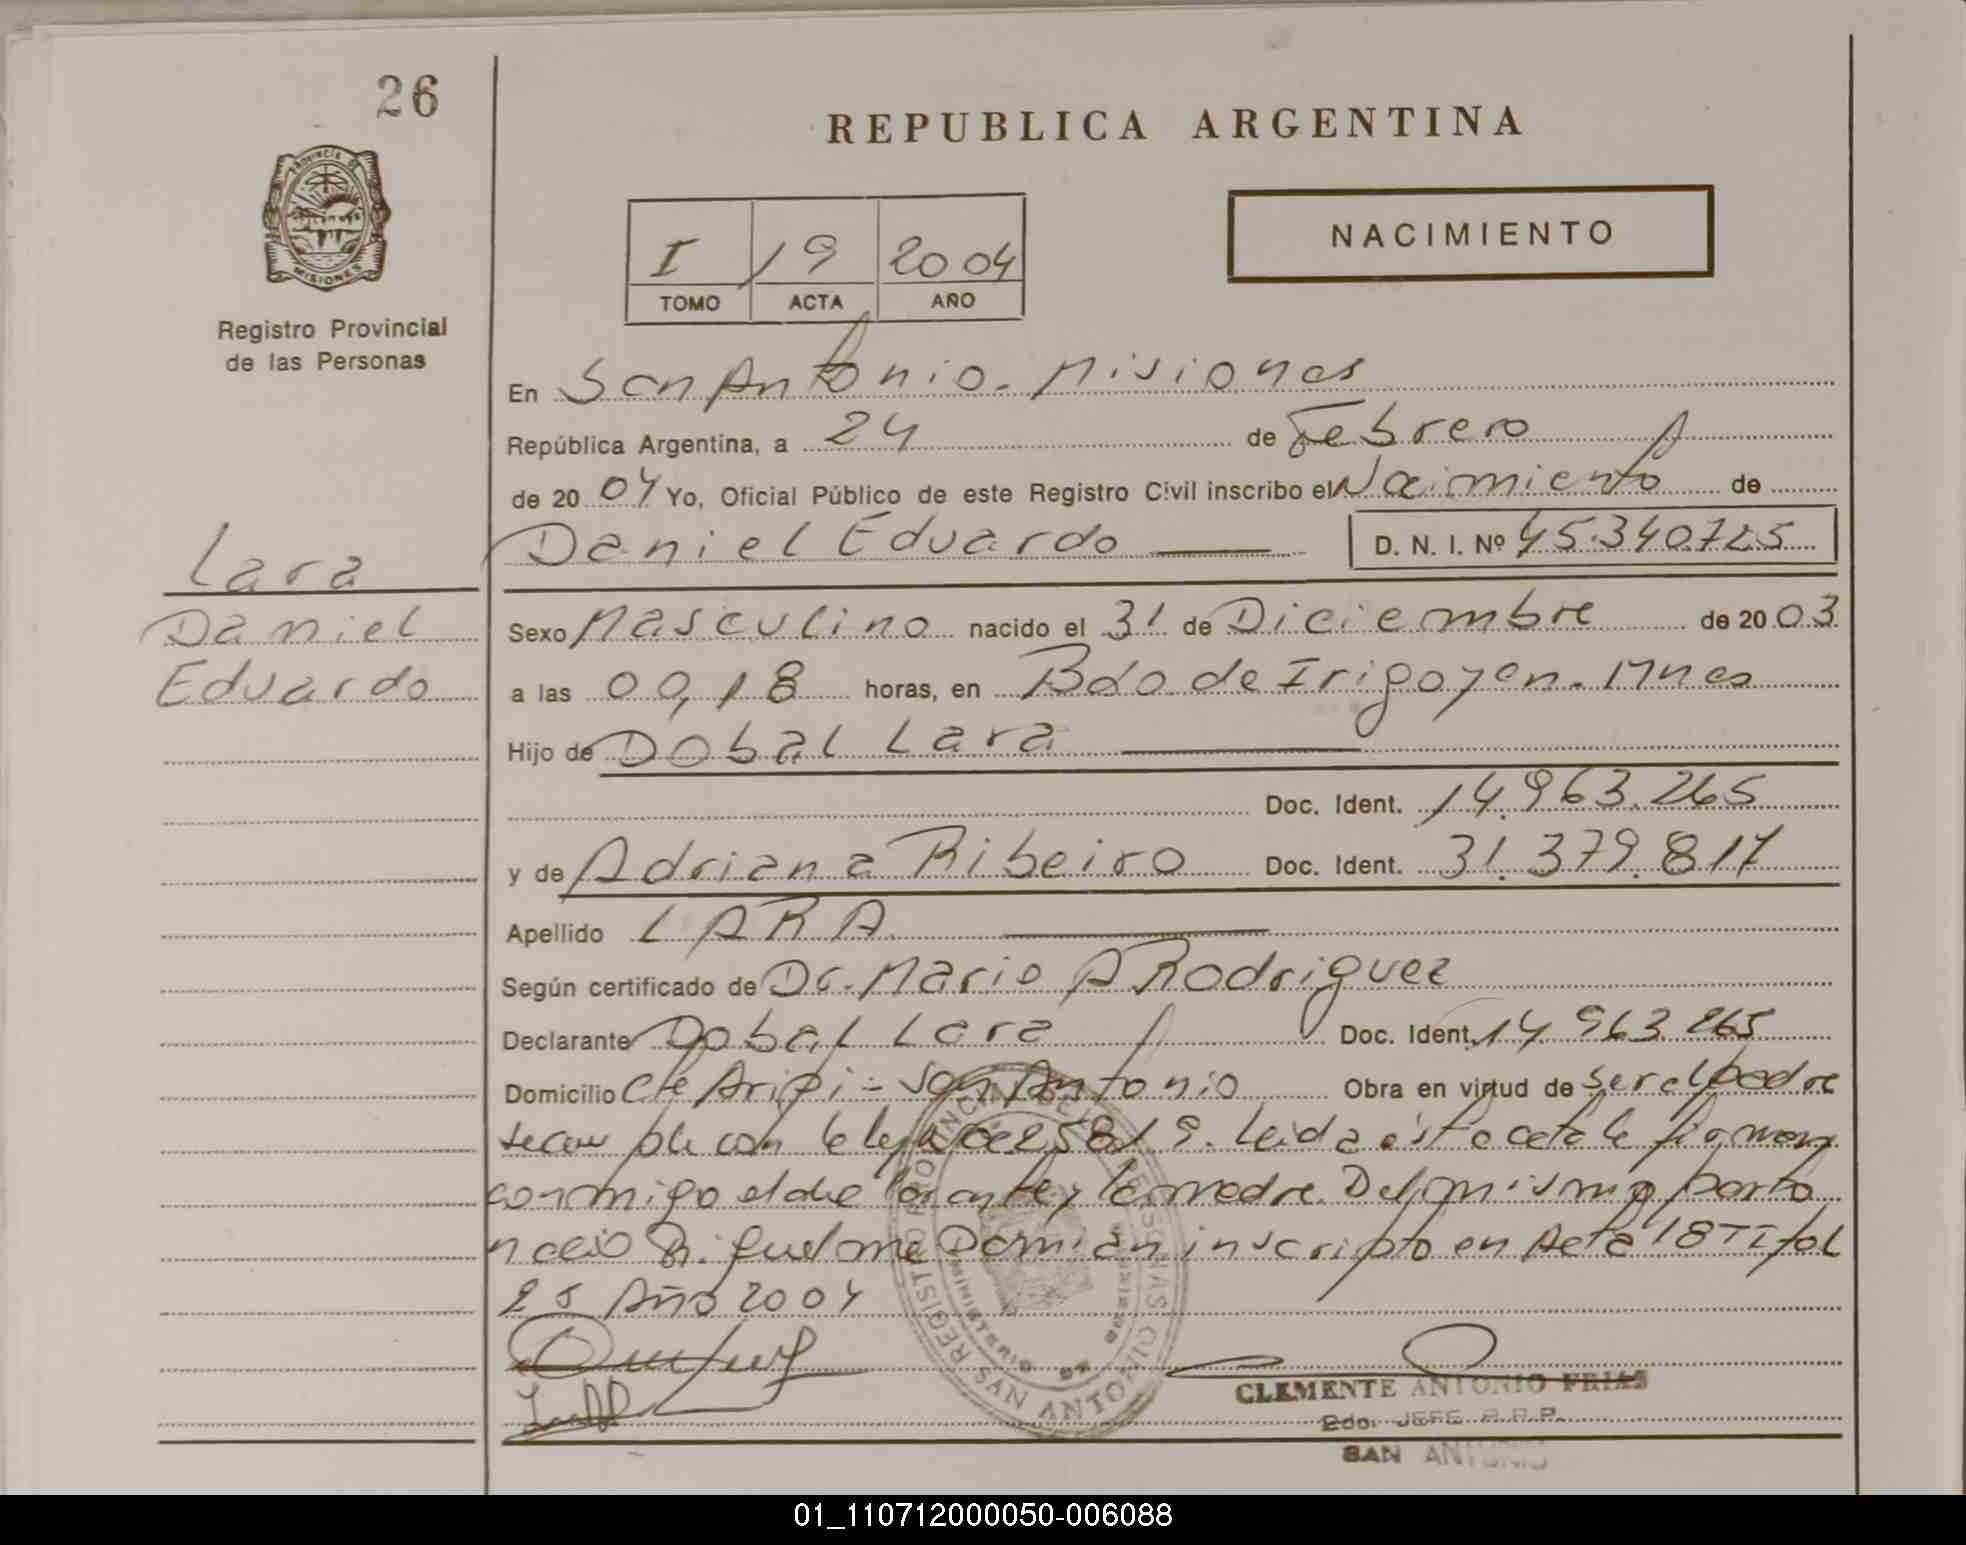 26
REPUBLICA ARGENTINA
PROVINCIA DE
MISIONES
Registro Provincial
de las Personas
NACIMIENTO
I 19 2004
TOMO ACTA AÑO
En San Antonio - Misiones
República Argentina, a 24 de Febrero
de 20 04 Yo, Oficial Público de este Registro Civil inscribo el Nacimiento de
Daniel Eduardo D. N. I. Nº 45.340.725
Lara
Daniel
Eduardo
Sexo Masculino nacido el 31 de Diciembre de 20 03
a las 00,18 horas, en Bdo de Irigoyen - Mnes
Hijo de Dobal Lara
Doc. Ident. 14.963.265
y de Adriana Ribeiro Doc. Ident. 31.379.817
Apellido LARA
Según certificado de Dr. Mario A Rodriguez
Declarante Dobal Lara Doc. Ident. 14.963.265
Domicilio Cte Aripi - San Antonio Obra en virtud de ser el padre
con la ley 25819. Leida esta acta la firman
conmigo el declarante y la madre. Del mismo parto
nacio Damian inscripto en Acta 18 TI fol
25 Año 2004
CLEMENTE ANTONIO FRIAS
Edo. JEFE R.P.P.
SAN ANTONIO
01_110712000050-006088